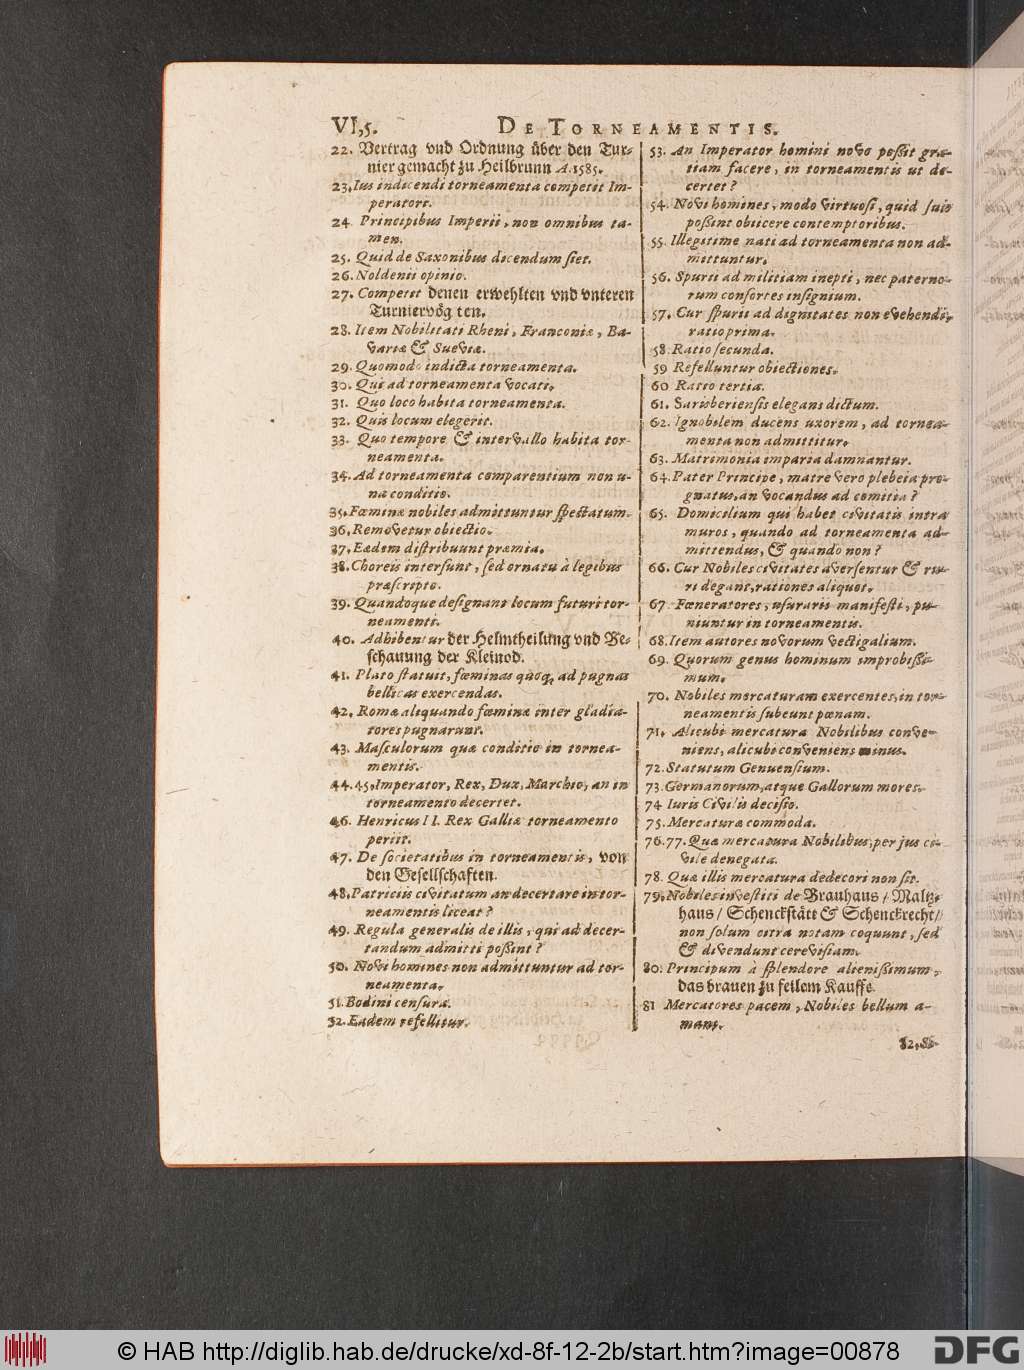 VI,5. DE TORNEAMENTIS.
22. Vertrag vnd Ordnung über den Tur-
nier gemacht zu Heilbrunn A. 1585.
23. Ius indicendi torneamenta competit Im-
peratori.
24. Principibus Imperii, non omnibus ta-
men.
25. Quid de Saxonibus dicendum siet.
26. Noldenii opinio.
27. Competit denen erwehlten vnd vnteren
Turniervög ten.
28. Item Nobilitati Rheni, Franconiæ, Ba-
variæ & Sueviæ.
29. Quomodo indicta torneamenta.
30. Qui ad torneamenta vocati.
31. Quo loco habita torneamenta.
32. Quis locum elegerit.
33. Quo tempore & intervallo habita tor-
neamenta.
34. Ad torneamenta comparentium non u-
na conditio.
35. Fœminæ nobiles admittuntur spectatum.
36. Removetur obiectio.
37. Eædem distribuunt præmia.
38. Choreis intersunt, sed ornatu à legibus
præscripto.
39. Quandoque designant locum futuri tor-
neamenti.
40. Adhibentur der Helmtheilung vnd Be-
schauung der Kleinod.
41. Plato statuit, fœminas quoq, ad pugnas
bellicas exercendas.
42. Romæ aliquando fœminæ inter gladia-
tores pugnarunt.
43. Masculorum quæ conditio in tornea-
mentis.
44. 45. Imperator, Rex, Dux, Marchio, an in
torneamento decertet.
46. Henricus II. Rex Galliæ torneamento
periit.
47. De societatibus in torneamentis, von
den Gesellschaften.
48. Patriciis civitatum an decertare in tor-
neamentis liceat?
49. Regula generalis de illis, qui ad decer-
tandum admitti possint?
50. Novi homines non admittuntur ad tor-
neamenta.
51. Bodini censura.
52. Eadem refellitur.
53. An Imperator homini novo possit gra-
tiam facere, in torneamentis ut de-
certet?
54. Novi homines, modo virtuosi, quid suis
possint obiicere contemptoribus.
55. Illegitime nati ad torneamenta non ad-
mittuntur.
56. Spurii ad militiam inepti, nec paterno-
rum consortes insignium.
57. Cur spurii ad dignitates non evehendi,
ratio prima.
58. Ratio secunda.
59 Refelluntur obiectiones.
60 Ratio tertia.
61. Sarisberiensis elegans dictum.
62. Ignobilem ducens uxorem, ad tornea-
menta non admittitur.
63. Matrimonia imparia damnantur.
64. Pater Principe, matre vero plebeia pro-
gnatus, an vocandus ad comitia?
65. Domicilium qui habet civitatis intra
muros, quando ad torneamenta ad-
mittendus, & quando non?
66. Cur Nobiles civitates aversentur & ru-
ri degant, rationes aliquot.
67. Fœneratores, usurarii manifesti, pu-
niuntur in torneamentis.
68. Item autores novorum vectigalium.
69. Quorum genus hominum improbissi-
mum.
70. Nobiles mercaturam exercentes, in tor-
neamentis subeunt pœnam.
71. Alicubi mercatura Nobilibus conve-
niens, alicubi conveniens minus.
72. Statutum Genuensium.
73. Germanorum, atque Gallorum mores.
74 Iuris Civilis decisio.
75. Mercaturæ commoda.
76. 77. Quæ mercatura Nobilibus, per jus ci-
vile denegata.
78. Quæ illis mercatura dedecori non sit.
79. Nobiles investiti de Brauhaus / Maltz-
haus / Schenckstätt & Schenckrecht /
non solum citra notam coquunt, sed
& divendunt cerevisiam.
80. Principum à splendore alienissimum,
das brauen zu feilem Kauffe.
81 Mercatores pacem, Nobiles bellum a-
mant.
82. S-
© HAB http://diglib.hab.de/drucke/xd-8f-12-2b/start.htm?image=00878
DFG